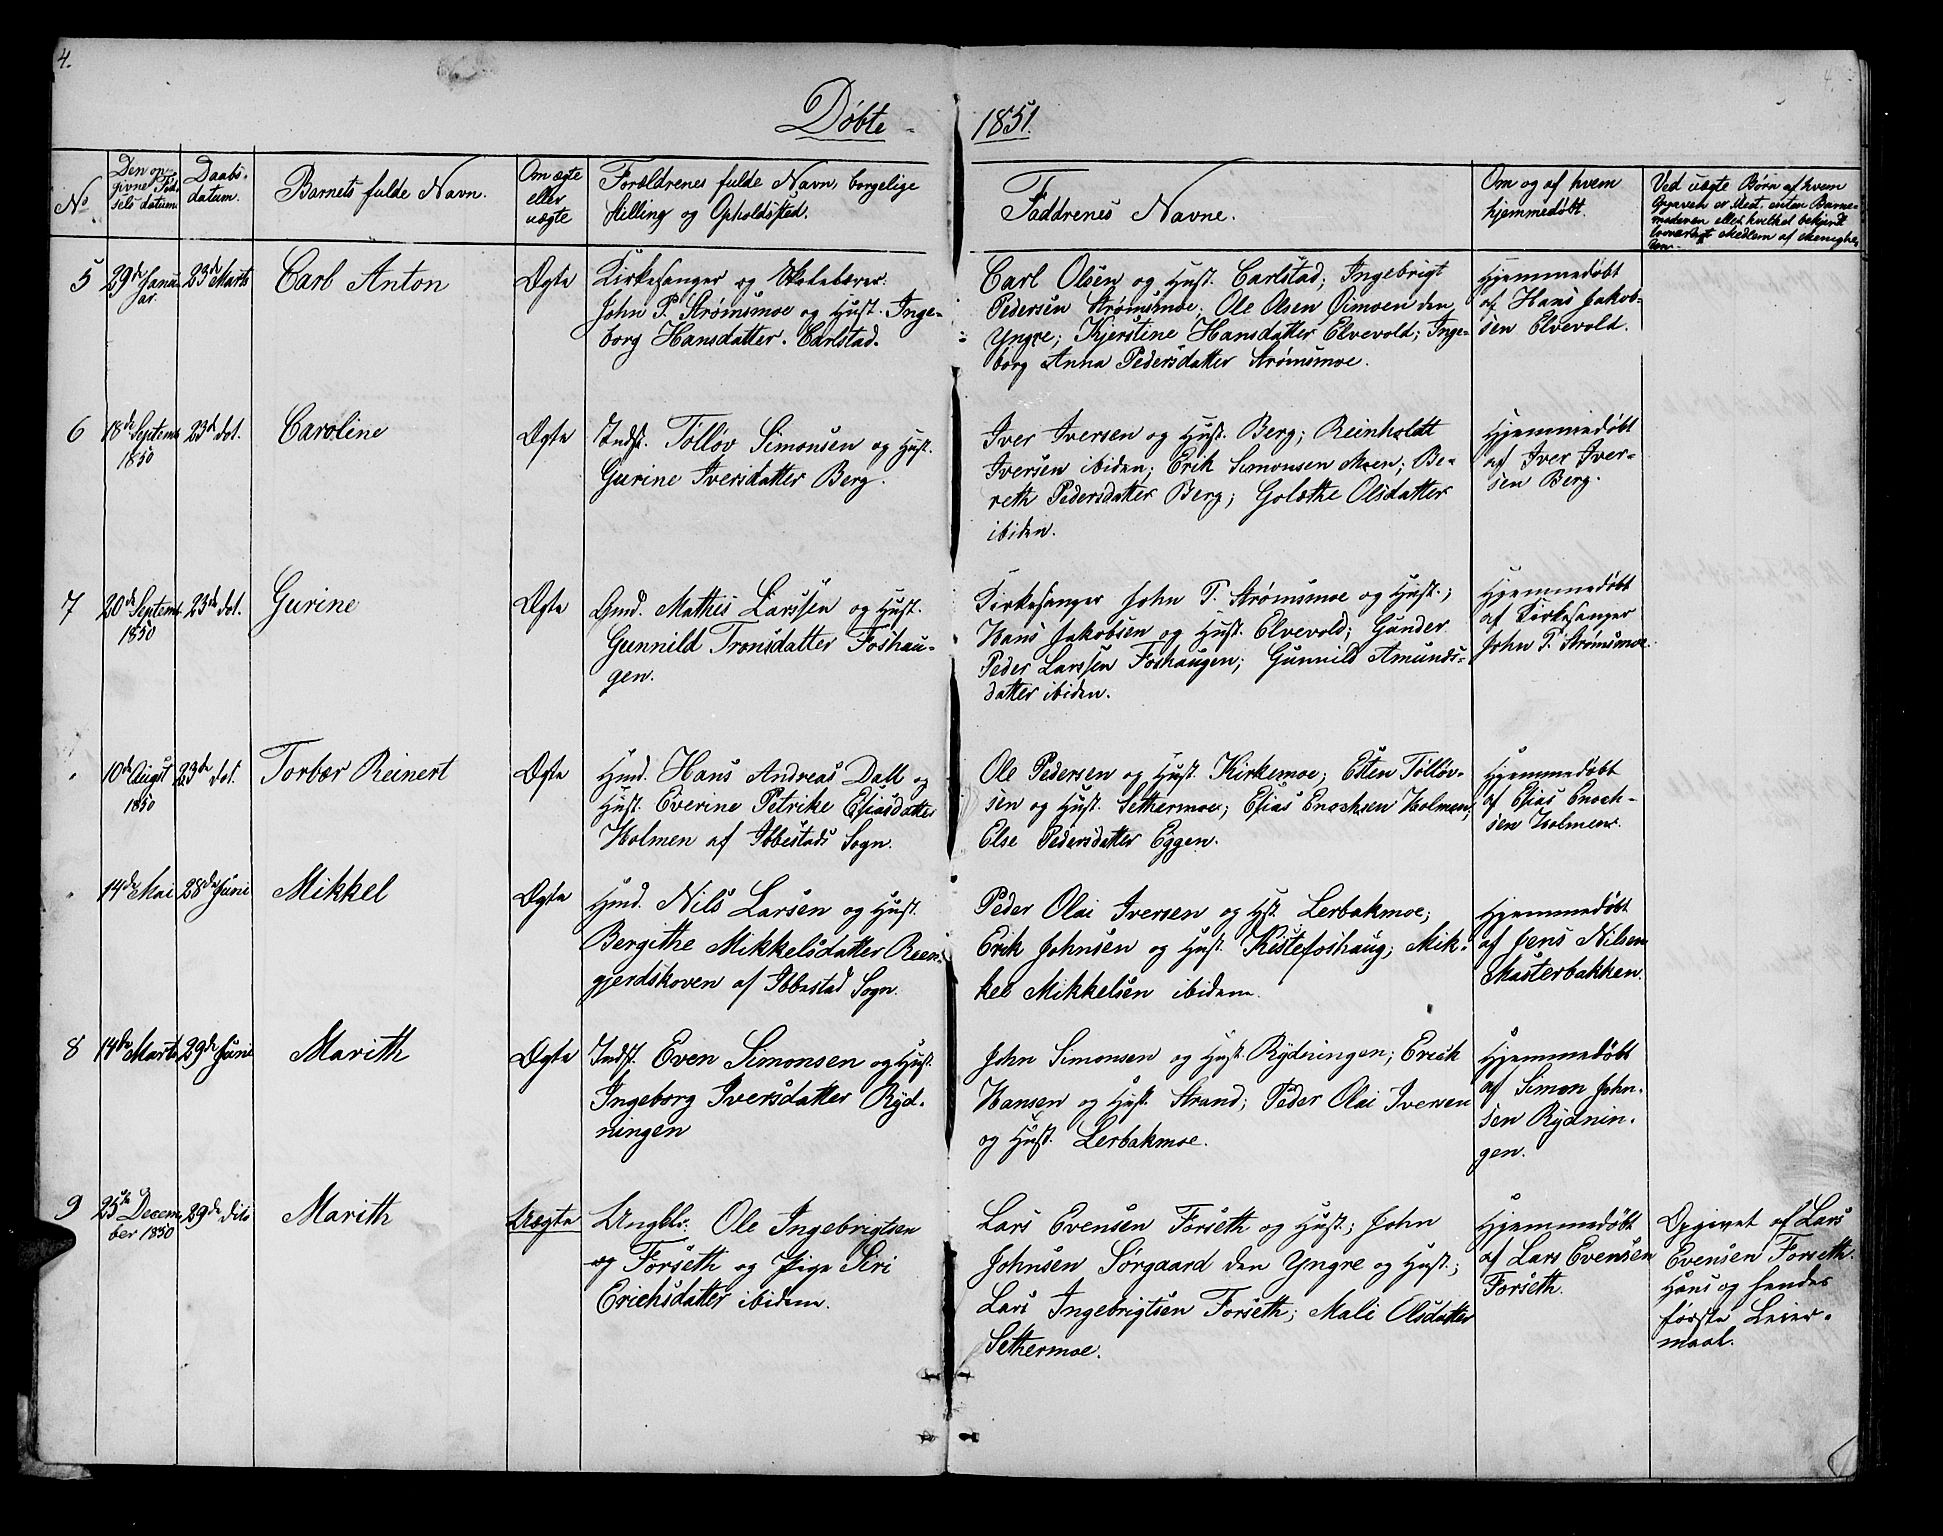 4.
Døbte 1851.
No
Den op-
givne Fød-
sels datum.
Daabs-
datum.
Barnets fulde Navn.
Om ægte
eller
uægte
Forældrenes fulde Navn, borgelige
Stilling og Opholdssted.
Faddrenes Navne.
Om og af hvem
hjemmedøbt.
Ved uægte Børn af hvem
Opgaven er skeet. enten Barne-
moderen eller hvilket bekjendt
troværdigt Medlem af Menighe-
den.
5
29de Janu-
ar.
23de Marts
Carl Anton
Ægte
Kirkesanger og Skolelærer
John P. Strømsmoe og Hust. Inge-
borg Hansdatter. Carlstad.
Carl Olsen og Hust. Carlstad; Ingebrigt
Pedersen Strømsmoe; Ole Olsen Øimoen den
Yngre; Kjerstine Hansdatter Elvevold; Inge-
borg Anna Pedersdatter Strømsmoe.
Hjemmedøbt
af Hans Jakob-
sen Elvevold.
6
18de Septemb
1850
23de dot.
Caroline
Ægte
Indst. Tolløv Simonsen og Hust.
Gurine Iversdatter Berg.
Iver Iversen og Hust. Berg; Reinholdt
Iversen ibiden; Erik Simonsen Moen; Be-
reth Pedersdatter Berg; Golæthe Olsdatter
ibiden.
Hjemmedøbt
af Iver Iver-
sen Berg.
7
20de Septemb
1850
23de dot.
Gurine
Ægte
Gmd. Mathis Larssen og Hust.
Gunnild Tronsdatter Foshau-
gen.
Kirkesanger John P. Strømsmoe og Hust.;
Hans Jakobsen og Hust. Elvevold; Gunder
Peder Larssen Foshaugen; Gunnild Amunds-
datter ibiden.
Hjemmedøbt
af Kirkesanger
John P. Strømsmoe.
"
10de August
1850
23de dot.
Torbær Reinert
Ægte
Hmd. Hans Andreas Dall og
Hust. Everine Petrike Esiasdatter
Holmen af Ibbestads Sogn.
Ole Pedersen og Hust. Kirkemoe; Esten Tølløv-
sen og Hust. Sethermoe; Esias Enochsen Holmen;
Else Pedersdatter Eggen.
Hjemmedøbt
af Esias Enoch-
sen Holmen.
"
14de Mai
28de Juni
Mikkel
Ægte
Hmd. Nils Larsen og Hust.
Bergithe Mikkelsdatter Reen-
gjerdskoven af Ibbestad Sogn.
Peder Olai Iversen og Hst. Lerbakmoe;
Erik Johnsen og Hust. Kistefoshaug; Mik-
kel Mikkelsen ibidem.
Hjemmedøbt
af Jens Nilsen
Masterbakken.
8
14de Marts
29de Juni
Marith
Ægte
Indst. Even Simonsen og Hust.
Ingeborg Iversdatter Ryd-
ningen
John Simonsen og Hust. Rydningen; Erick
Hansen og Hust. Strand; Peder Olai Iversen
og Hust. Lerbakmoe.
Hjemmedøbt
af Simon John-
sen Rydnin-
gen.
9
25de Decem-
ber 1850
29de dito
Marith
Uægte
Ungkl. Ole Ingebrigtsen
og Forseth og Pige Siri
Erichsdatter ibidem.
Lars Evensen Forseth og Hust.; John
Johnsen Sørgaard den Yngre og Hust.;
Lars Ingebrigtsen Forseth; Mali Olsdatter
Sethermoe.
Hjemmedøbt
af Lars Evensen
Forseth.
Opgivet af Lars
Evensen Forseth.
Hans og hendes
første Leier-
maal.